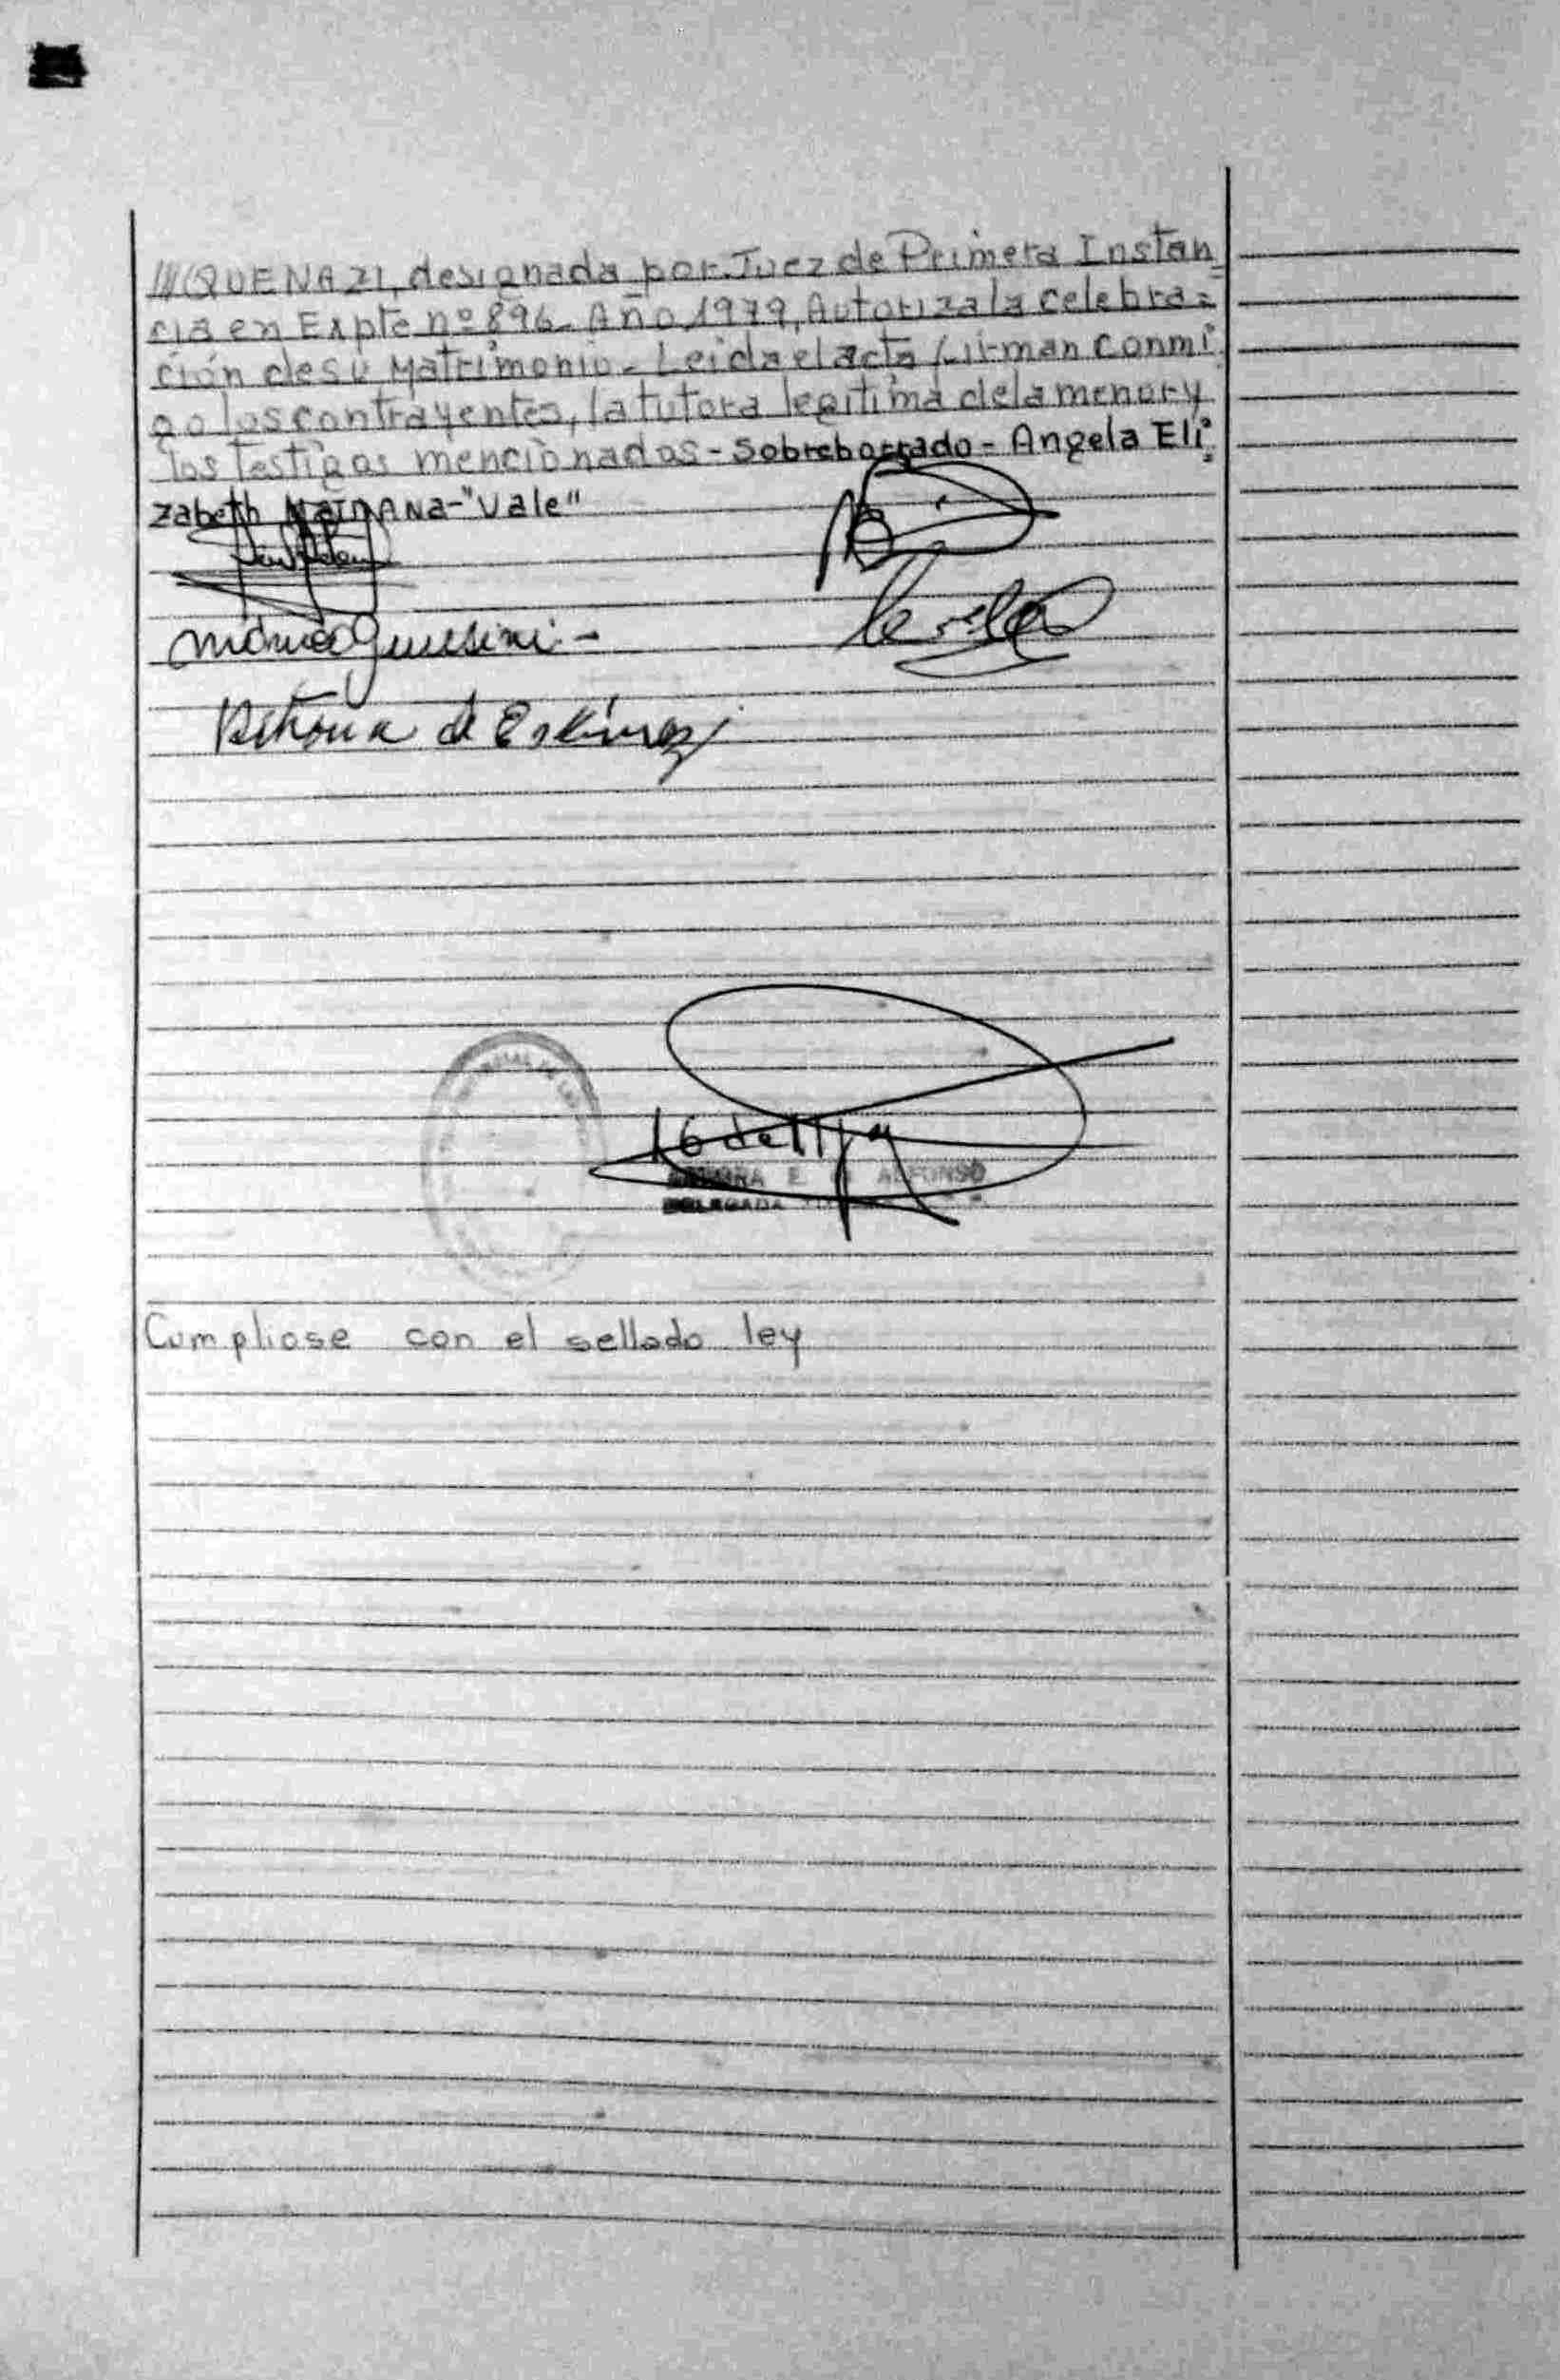 ///QUENAZI, designada por Juez de Primera Instan_
cia en Expte nº 896- Año 1979, Autoriza la celebra=
ción de su Matrimonio- Leida el acta firman conmi
go los contrayentes, la tutora legitima de la menor y
los testigos mencionados - Sobreborrado - Angela Eli
zabeth MAIDANA-"Vale"
Monica
de Eskinazi
ALFONSO
DELEGADA
Cumpliose con el sellado ley